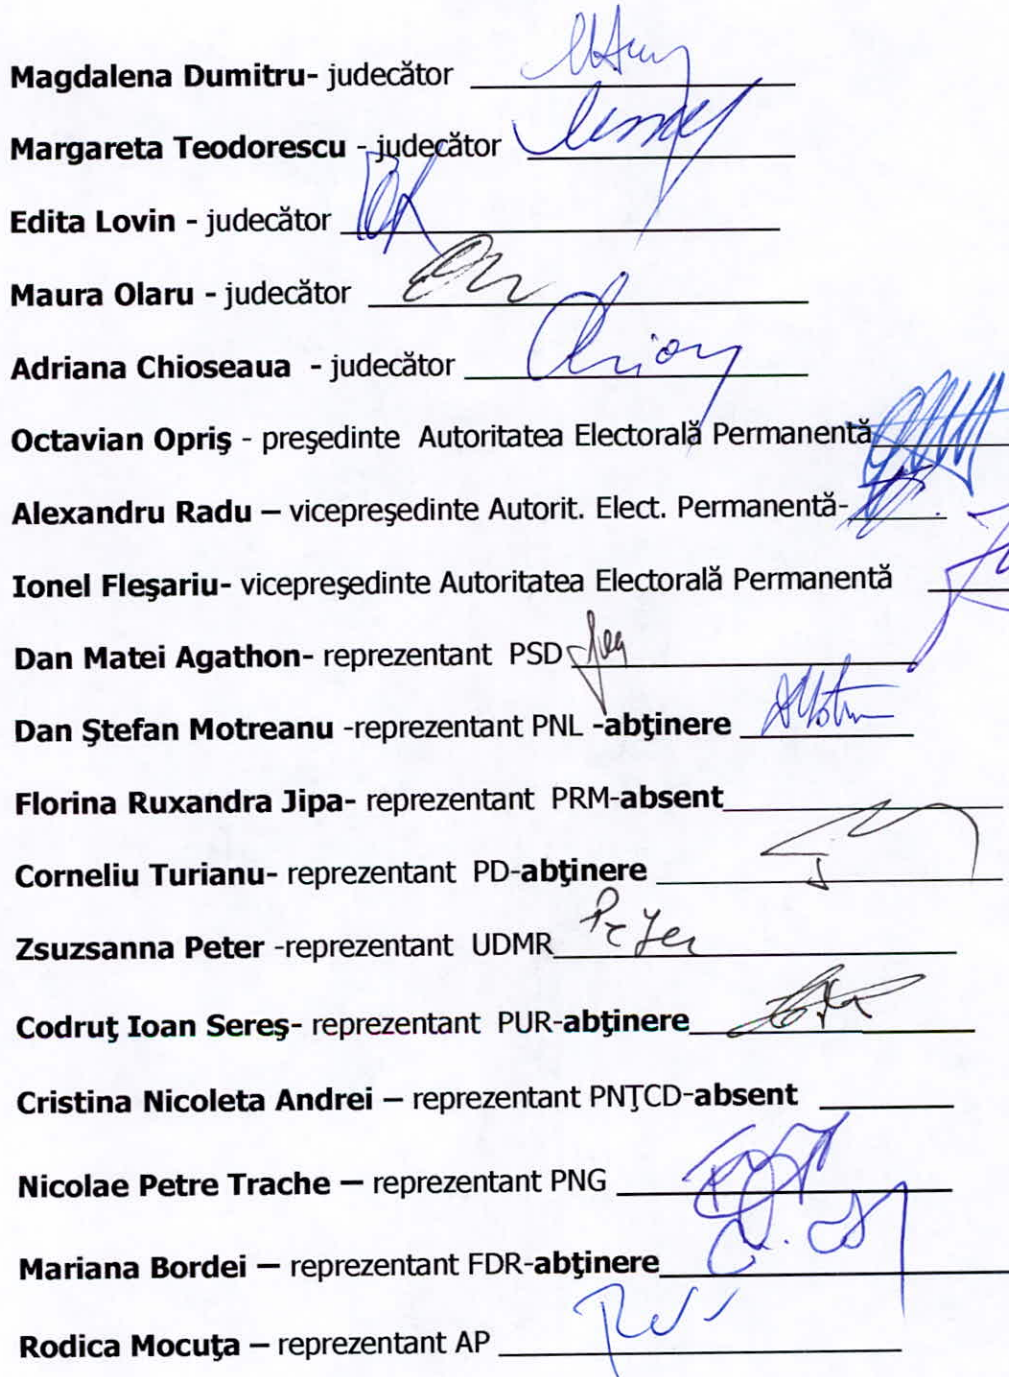 Magdalena Dumitru- judecător
Margareta Teodorescu - judecător
Edita Lovin - judecător
Maura Olaru - judecător
Adriana Chioseaua - judecător
Octavian Opriş - preşedinte Autoritatea Electorală Permanentă
Alexandru Radu – vicepreşedinte Autorit. Elect. Permanentă-
Ionel Fleşariu- vicepreşedinte Autoritatea Electorală Permanentă
Dan Matei Agathon- reprezentant PSD
Dan Ştefan Motreanu -reprezentant PNL -abţinere
Florina Ruxandra Jipa- reprezentant PRM-absent
Corneliu Turianu- reprezentant PD-abţinere
Zsuzsanna Peter -reprezentant UDMR Peter
Codruţ Ioan Sereş- reprezentant PUR-abţinere
Cristina Nicoleta Andrei – reprezentant PNŢCD-absent
Nicolae Petre Trache – reprezentant PNG
Mariana Bordei – reprezentant FDR-abţinere
Rodica Mocuţa – reprezentant AP